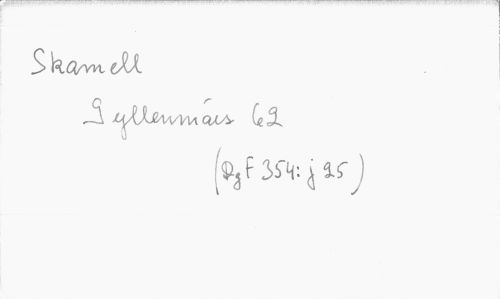 Skamell
Gyllenmärs 62
(DgF 354: j 25)